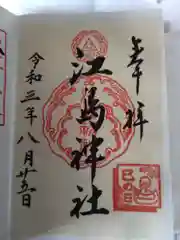 奉拝
江島神社
令和三年八月廿五日
巳の日